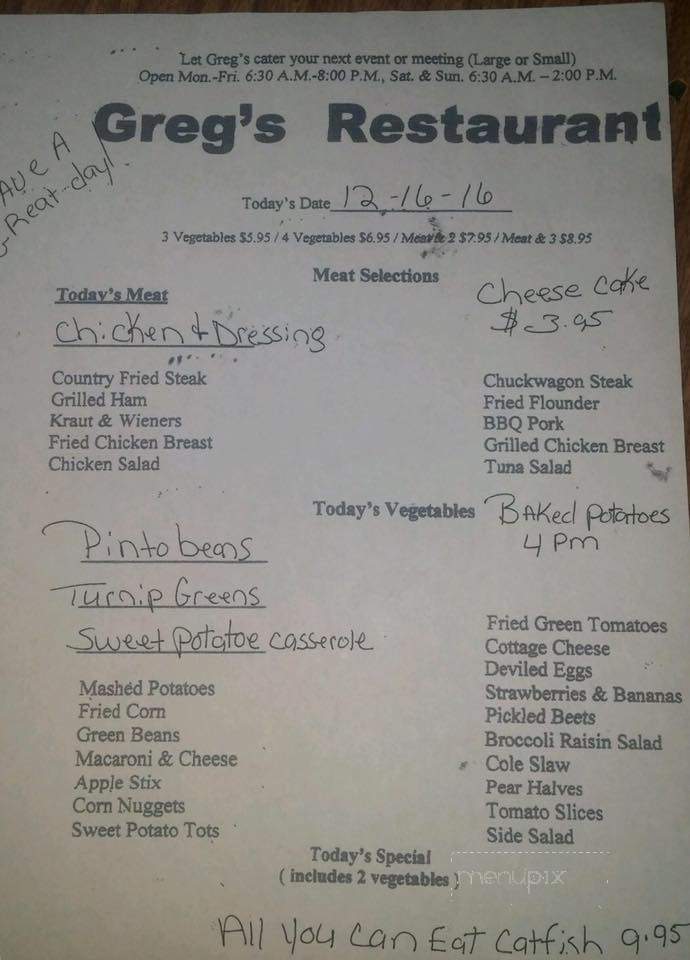 Let Greg's cater your next event or meeting (Large or Small)
Open Mon.-Fri. 6:30 A.M.-8:00 P.M., Sat. & Sun. 6:30 A.M. – 2:00 P.M.
Greg's Restaurant
ave A
Great day!
Today's Date 12-16-16
3 Vegetables $5.95 / 4 Vegetables $6.95 / Meat & 2 $7.95 / Meat & 3 $8.95
Meat Selections
Today's Meat
Chicken & Dressing
Cheese cake
$3.95
Country Fried Steak
Grilled Ham
Kraut & Wieners
Fried Chicken Breast
Chicken Salad
Chuckwagon Steak
Fried Flounder
BBQ Pork
Grilled Chicken Breast
Tuna Salad
Today's Vegetables
Baked Potatoes
4 Pm
Pinto beans
Turnip Greens
Sweet Potatoe casserole
Mashed Potatoes
Fried Corn
Green Beans
Macaroni & Cheese
Apple Stix
Corn Nuggets
Sweet Potato Tots
Fried Green Tomatoes
Cottage Cheese
Deviled Eggs
Strawberries & Bananas
Pickled Beets
Broccoli Raisin Salad
Cole Slaw
Pear Halves
Tomato Slices
Side Salad
Today's Special
( includes 2 vegetables )
menupix
All You Can Eat Catfish 9.95